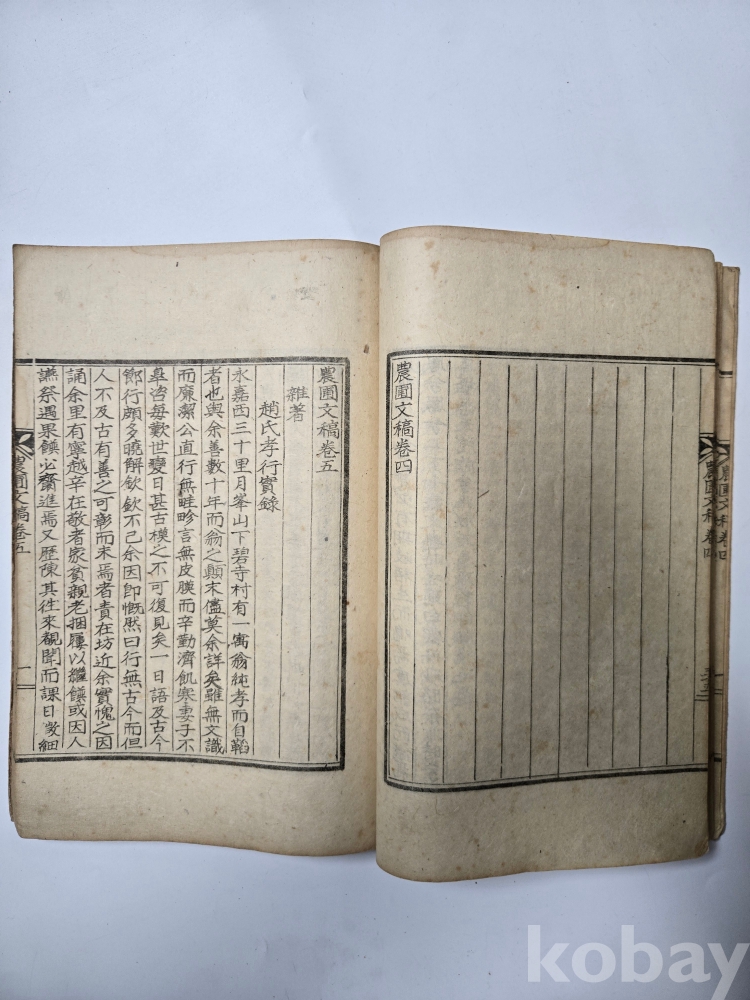 農圃文稿卷四
農圃文稿卷四
農圃文稿卷四
農圃文稿卷五
雜著
趙氏孝行實錄
永嘉西三十里月峯山下碧寺村有一寓翁純孝而自韜
者也與余善數十年而翁之顛末儘莫余詳矣雖無文識
而廉潔公直行無畦畛言無皮膜而辛勤濟飢寒妻子不
畢咨每歎世變日甚古模之不可復見矣一日語及古今
節行頗多曉解欽欽不已余因卽慨然曰行無古今而但
人不及古有善之可彰而未焉者責在坊近余實愧之因
誦余里有寧越辛在敬者家貧親老捆屨以繼饌或因人
讌祭遇果饌必齎進焉又歷陳其往來觀聞而課日歲細
農圃文稿卷五
一
kobay